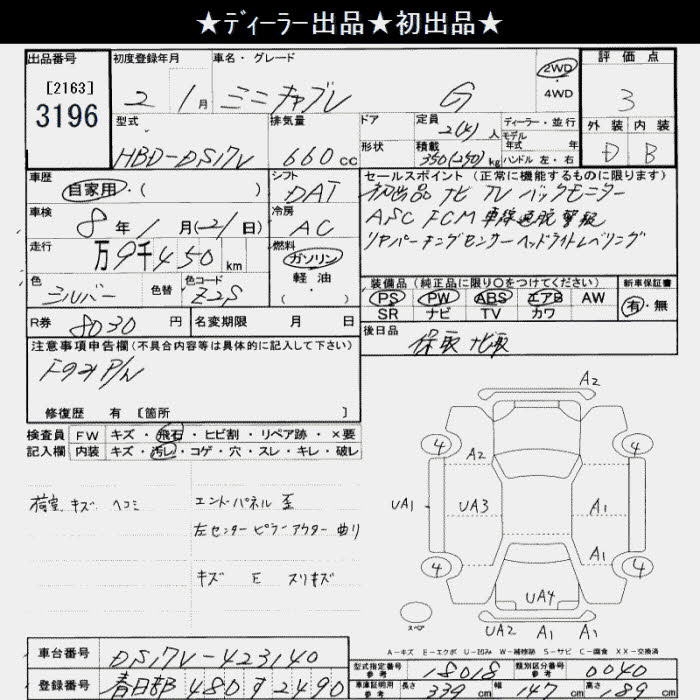 ★ディーラー出品★初出品★
出品番号 初度登録年月 車名・グレード 評価点
[2163]
3196
2 1月 ミニキャブV G 2WD・4WD 3
型式 排気量 ドア 定員 2(4)人 ディーラー・並行
モデル年式 年式 外装 内装
HBD-DS17V 660cc 形状 積載 350(250)kg ハンドル 左・右 D B
車歴 シフト セールスポイント(正常に機能するものに限ります)
自家用・( ) DAT 初出品 ナビ TV バックモニター
車検 冷房 ASC FCM 車線逸脱警報
8年1月(21日) AC リヤパーキングセンサーヘッドライトレベリング
走行 燃料
万9千450km ガソリン
軽油・( )
色 色替 色コード 装備品(純正品に限り○をつけてください) 新車保証書
シルバー Z2S PS PW ABS エアB AW 有・無
SR ナビ TV カワ
R券 8030円 名変期限 月 日 後日品
保取 ナビ取
注意事項申告欄(不具合内容等は具体的に記入して下さい)
修復歴 有 [箇所 ]
検査員 FW キズ・飛石・ヒビ割・リペア跡・×要
記入欄 内装 キズ・汚レ・コゲ・穴・スレ・キレ・破レ
荷室 キズ ヘコミ エンドパネル 歪
左センターピラーアウター曲り
キズ E スリキズ
A2
4 A2 4
UA1 UA3 A1
A1
4 4
UA4
スペア UA2 A1 A1
A-キズ E-エクボ U-凹み W-補修跡 S-サビ C-腐食 XX-交換済
車台番号 DS17V-423140
型式指定番号 参考 18018 類別区分番号 参考 0040
登録番号 春日部 480 す 2490
車庫証明用 参考 長さ 339cm 幅 147cm 高さ 189cm